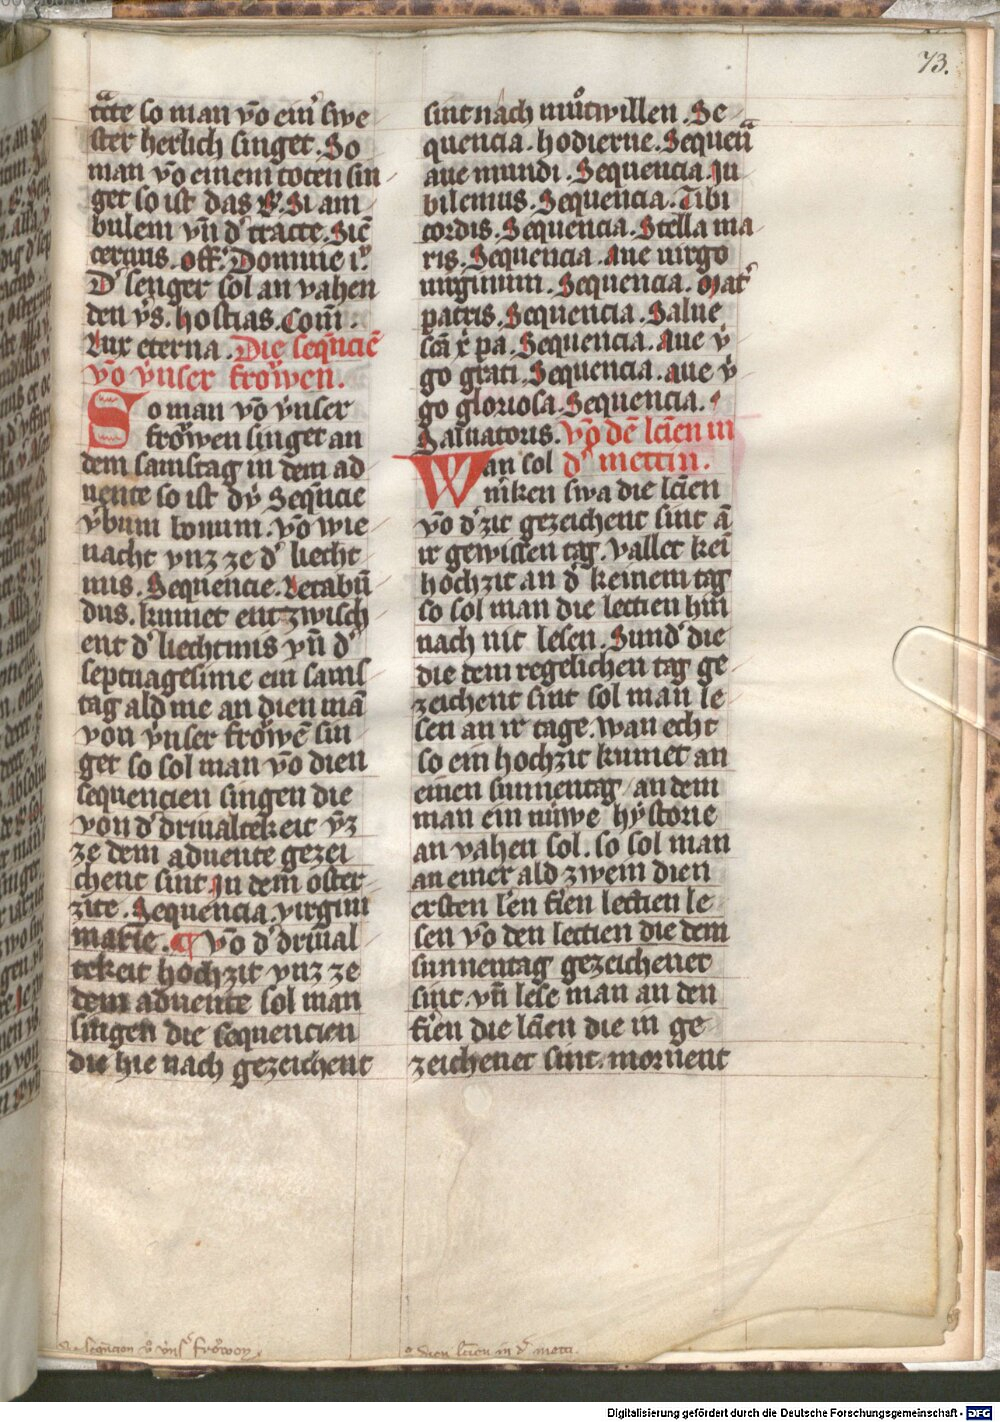 73.
tracte so man võ ein͛ swe
ster herlich singet. So
man võ einem toten sin
get so ist das R̷. Si am
bulem vn̄ d͛ tracte. Sic̄
ceruus. off͛. Domine i.
D͛ senger sol an vahen
den v̈s. hostias. Com̄.
Lux eterna. Die seqn̄cie
võ v̈nser frowen.
So man võ v̈nser
frowen singet an
dem samstag in dem ad
uente so ist dÿ Seqn̄cie
v͛bum bonum. võ wie
nacht vnz ze d͛ liecht
mis. Sequencie. Letabū
dus. kumet entzwisch
ent d͛ liechtmis vn̄ d͛
septuagesime ein sams
tag ald me an dien mā
von v̈nser frowē sin
get so sol man võ dien
sequencien singen die
von d͛ driualtekeit v̈z
ze dem aduente gezei
chent sint. In dem oster
zite. Sequencia. virgini
marie. ¶ Võ d͛ driual
tekeit hochzit vnz ze
dem aduente sol man
singen die sequencien
die hie nach gezeichent
sint nach muͦtwillen. Se
quencia. hodierne. Sequen
aue mundi. Sequencia. Iu
bilemus. Sequencia. Tibi
cordis. Sequencia. Stella ma
ris. Sequencia. Aue uirgo
uirginum. Sequencia. Mat͛
patris. Sequencia. Salue
sc̄a x̄pa. Sequencia. Aue v͛
go grati. Sequencia. aue v͛
go gloriosa. Sequencia.
Saluatoris. Võ dē lc̄ien in
Wan sol d͛ mettin.
m͛ken swa die lc̄ien
võ d͛ zit gezeichent sint ā
ir gewissen tag. vallet kei
hochzit an d͛ keinem tag
so sol man die lectien hin
nach nit lesen. Sund͛ die
die dem regelichen tag ge
zeichent sint sol man le
sen an ir tage. wan echt
so ein hochzit kumet an
einen sunnentag / an dem
man ein nuwe hÿstorie
an vahen sol. so sol man
an einer ald zwein dien
ersten l͛en f͛ien lectien le
sen võ den lectien die dem
sunnentag gezeichenet
sint. vn̄ lese man an den
f͛ien die lc̄ien die in ge
zeichenet sint. mornent
seqn̄cion võ v̈ns͛ frowen
dien lc̄ien in d͛ metti.
Digitalisierung gefördert durch die Deutsche Forschungsgemeinschaft - DFG